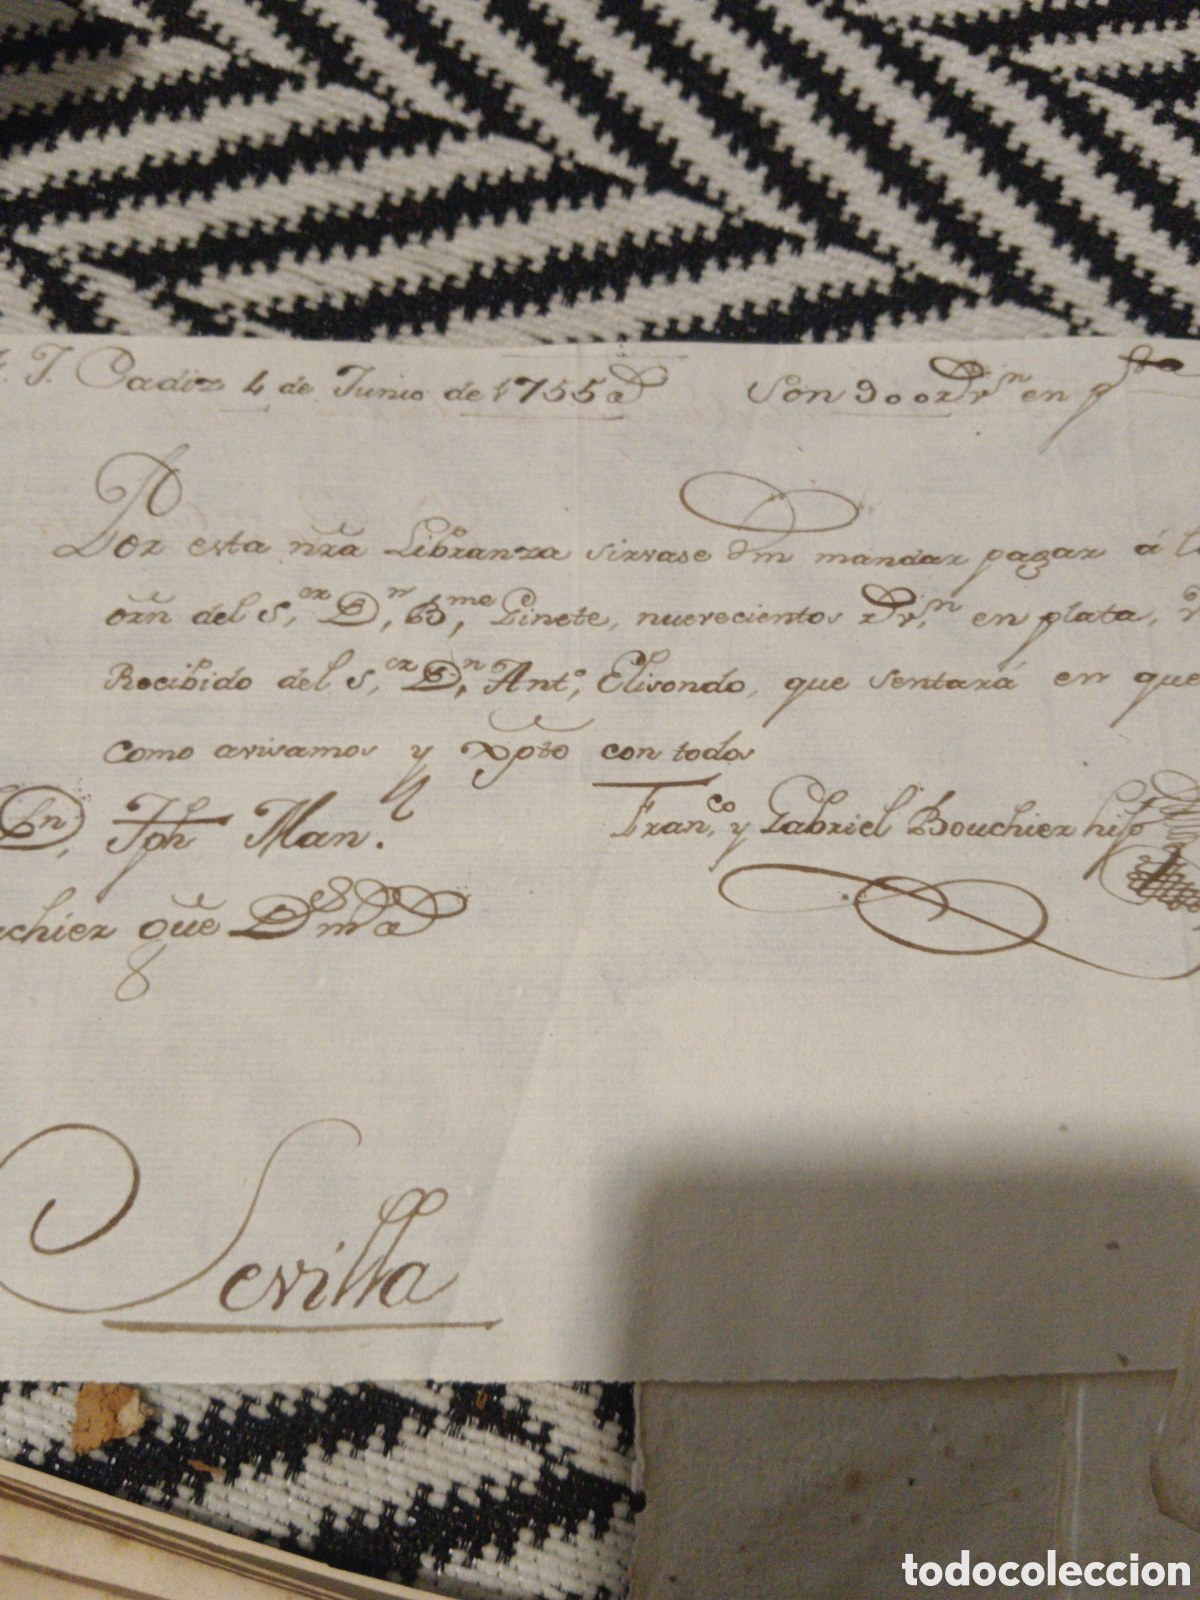 J. Cadiz 4 de Junio de 1755 a Son 900 Rs. vn en pta
Por esta nra Libranza sirvase Vm mandar pagar á
orñ del S,or Dn, Bme, Ginete, nuevecientos Rs. vn en plata,
Recibido del S,or Dn, Anto, Elisondo, que sentará en que
como avisamos y Xpto con todos
Dn, Jph Man. Franco, y Gabriel Bouchier hijo
chier que Dm a
Sevilla
todocoleccion